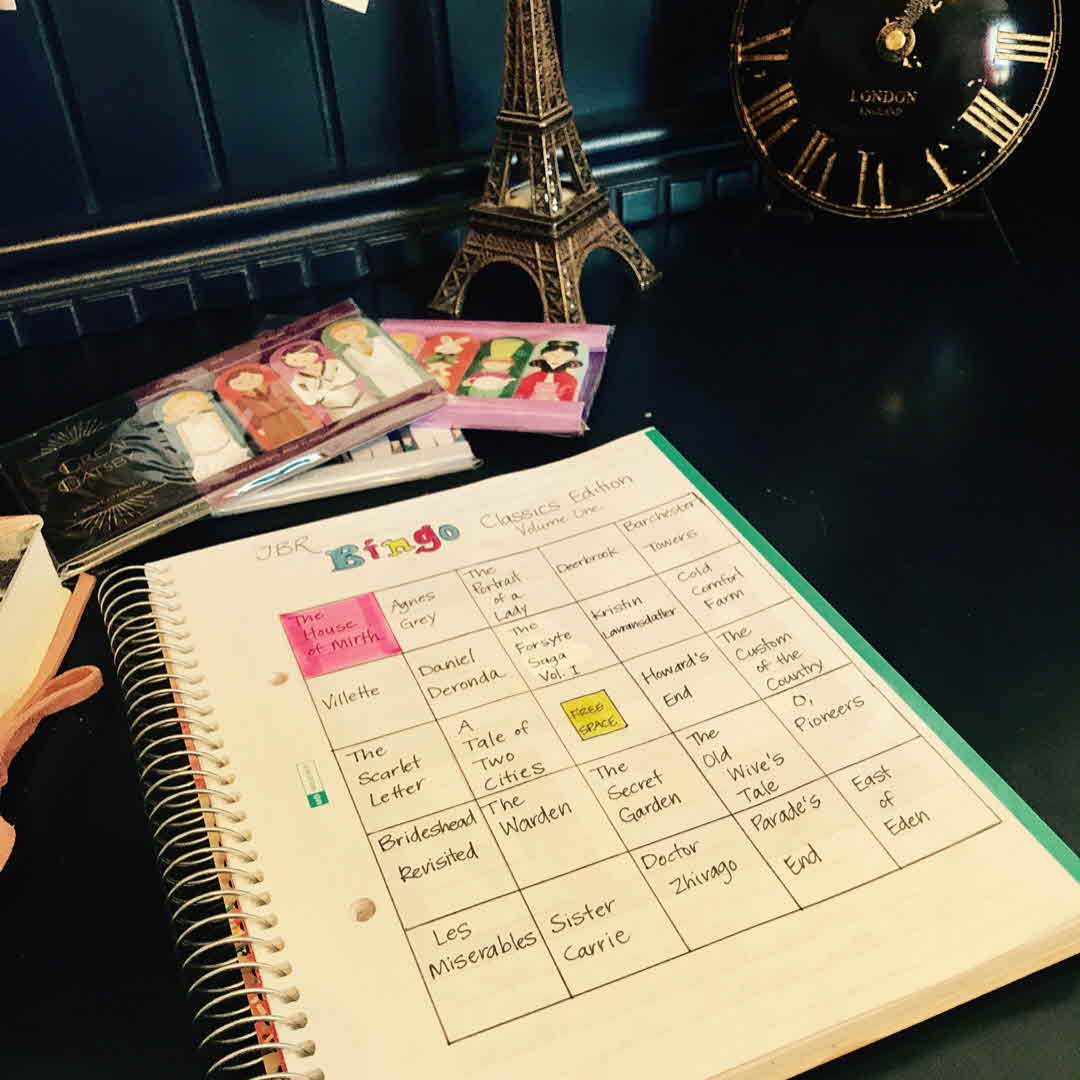 LONDON
ENGLAND
GREAT
GATSBY
TBR Bingo Classics Edition
Volume One
The
House
of Mirth
Agnes
Grey
The
Portrait
of a
Lady
Deerbrook
Barchester
Towers
Villette
Daniel
Deronda
The
Forsyte
Saga
Vol. I
Kristin
Lavransdatter
Cold
Comfort
Farm
The
Scarlet
Letter
A
Tale of
Two
Cities
FREE
SPACE
Howard's
End
The
Custom
of the
Country
Brideshead
Revisited
The
Warden
The
Secret
Garden
The
Old
Wive's
Tale
O,
Pioneers
Les
Miserables
Sister
Carrie
Doctor
Zhivago
Parade's
End
East
of
Eden